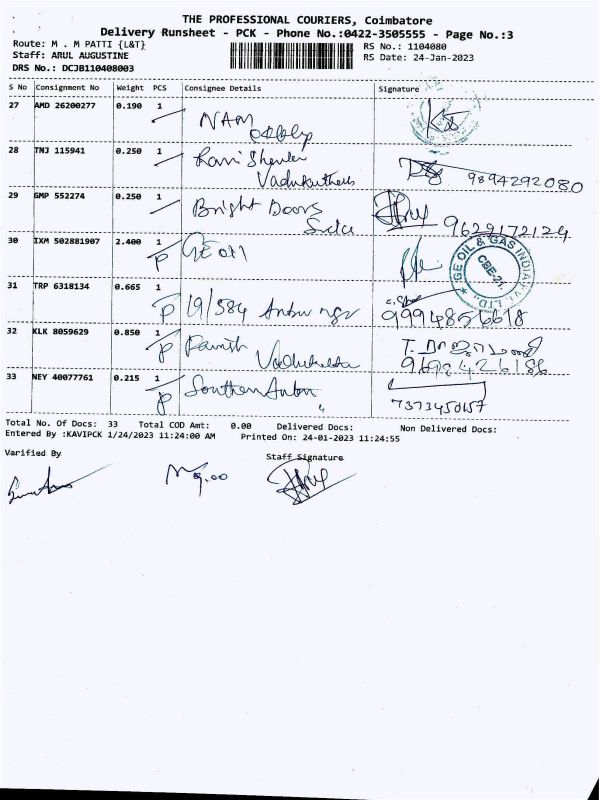 THE PROFESSIONAL COURIERS, Coimbatore
Delivery Runsheet - PCK - Phone No.:0422-3505555 - Page No.:3
Route: M . M PATTI {L&T}
RS No.: 1104080
Staff: ARUL AUGUSTINE
RS Date: 24-Jan-2023
DRS No.: DCJB110408003
S No Consignment No Weight PCS Consignee Details Signature
27 AMD 26200277 0.190 1
NAM
28 TNJ 115941 0.250 1
9894292080
29 GMP 552274 0.250 1
Bright Doors
9629172124
30 IXM 502881907 2.400 1
P GE Oil
GE OIL & GAS INDIA PVT. LTD.
CBE-21.
31 TRP 6318134 0.665 1
P 19/584 Anbu ngr
32 KLK 8059629 0.850 1
P
33 NEY 40077761 0.215 1
P Southern
Total No. Of Docs: 33 Total COD Amt: 0.00 Delivered Docs: Non Delivered Docs:
Entered By :KAVIPCK 1/24/2023 11:24:00 AM Printed On: 24-01-2023 11:24:55
Varified By
Staff Signature